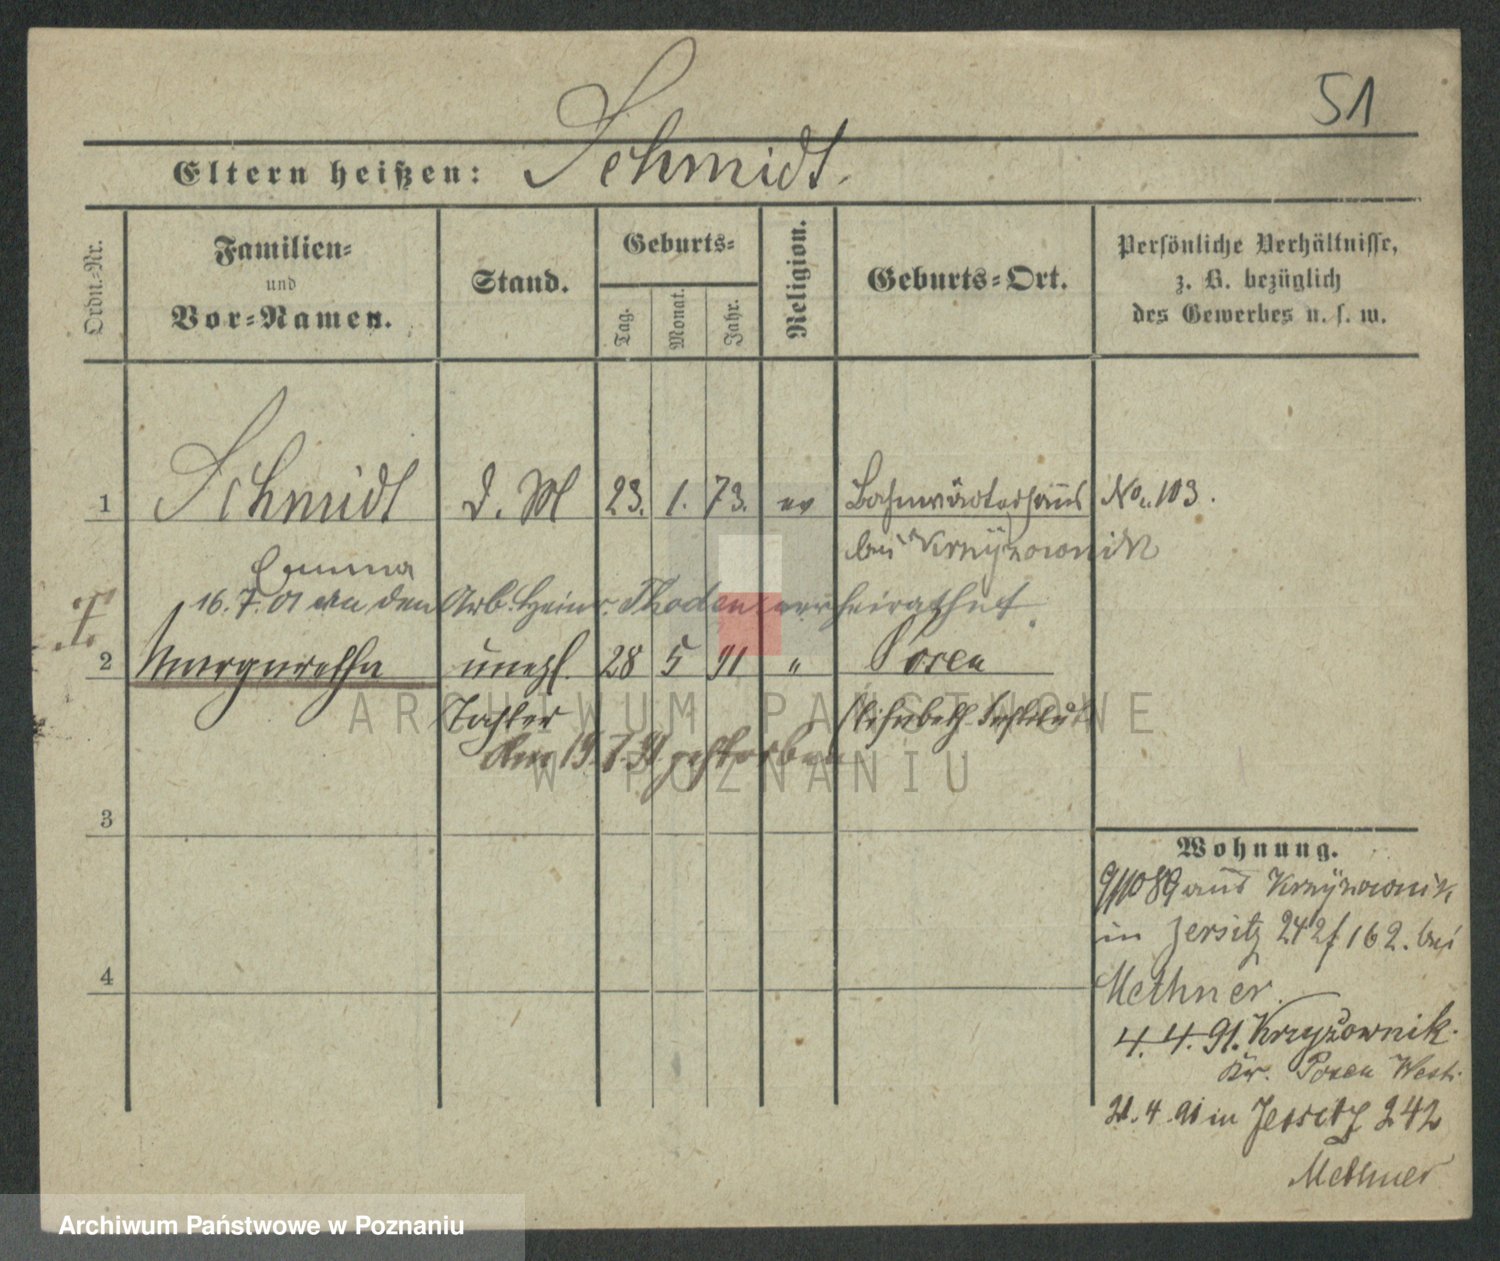 51
Eltern heißen: Schmidt.
Ordn.-Nr.
Familien-
und
Vor-Namen.
Stand.
Geburts-
Tag.
Monat.
Jahr.
Religion.
Geburts-Ort.
Persönliche Verhältnisse,
z. B. bezüglich
des Gewerbes u. s. w.
1 Schmidt D. M 23. 1. 73. ev Bahnwärterhaus No. 103.
bei Krzyzownik
Emma
16. 7. 01 an den Arb. Heinr. Thoden verheirathet.
2 Margarethe unehl. 28 5 91 " Posen
Tochter Elisabeth Institut
Am 19. 7. 91 gestorben
3
4
Wohnung.
9/10 89 aus Krzyzownik
in Jersitz 242/162. bei
Methner.
4. 4. 91. Krzyżownik.
Kr. Posen West.
21. 4. 91 in Jersitz 242
Methner
ARCHIWUM PAŃSTWOWE
W POZNANIU
Archiwum Państwowe w Poznaniu